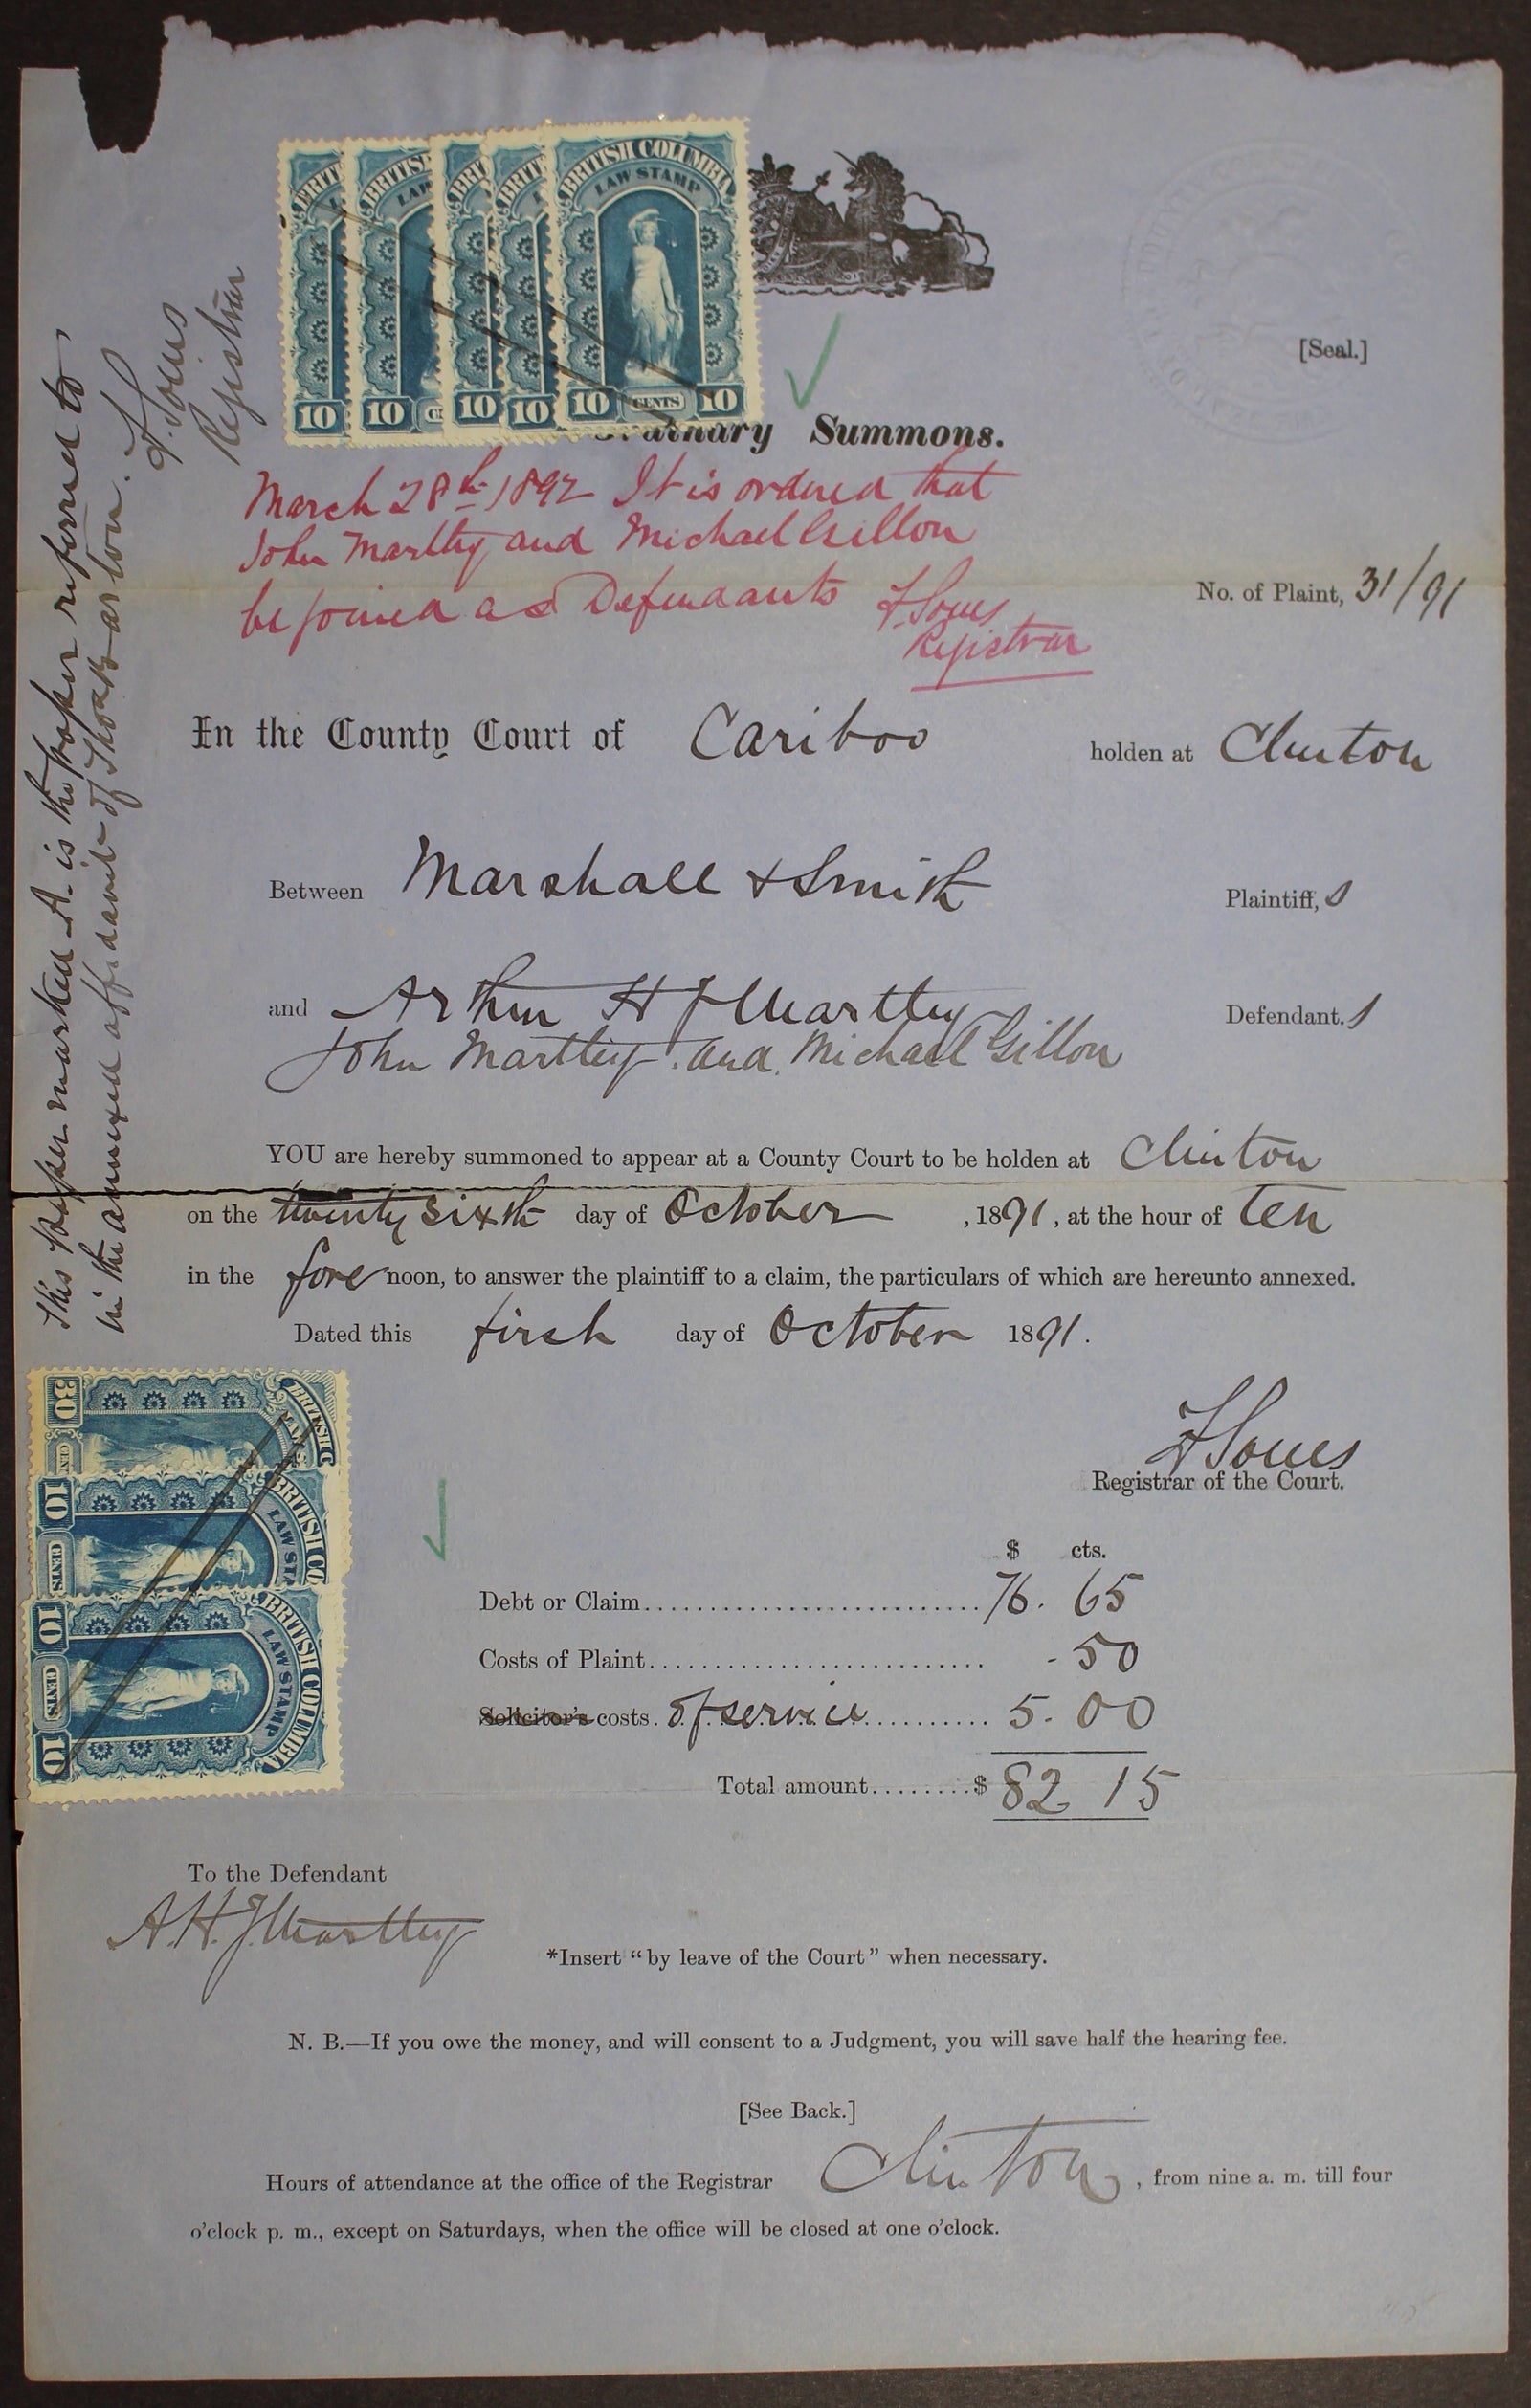 BRITISH COLUMBIA
LAW STAMP
10 10 10 10 10 CENTS 10
[Seal.]
Ordinary Summons.
March 28th 1892 It is ordered that
John Martley and Michael Gillon
be joined as Defendants F. Soues
Registrar
No. of Plaint, 31/91
In the County Court of Cariboo holden at Clinton
Between Marshall & Smith Plaintiff,s
and Arthur H J Martley Defendant.s
John Martley. and Michael Gillon
YOU are hereby summoned to appear at a County Court to be holden at Clinton
on the twenty sixth day of October , 1891, at the hour of ten
in the fore noon, to answer the plaintiff to a claim, the particulars of which are hereunto annexed.
Dated this first day of October 1891.
F Soues
Registrar of the Court.
$ cts.
Debt or Claim 76. 65
Costs of Plaint - 50
Solicitor's costs of service 5. 00
Total amount $ 82 15
To the Defendant
A. H. J. Martley
*Insert "by leave of the Court" when necessary.
N. B.—If you owe the money, and will consent to a Judgment, you will save half the hearing fee.
[See Back.]
Hours of attendance at the office of the Registrar Clinton, from nine a. m. till four
o'clock p. m., except on Saturdays, when the office will be closed at one o'clock.
This paper marked A. is the paper referred to
in the annexed affidavit of
F. Soues
Registrar
30 CENTS BRITISH C
10 CENTS BRITISH CO LAW STA
10 CENTS 10 BRITISH COLUMBIA LAW STAMP